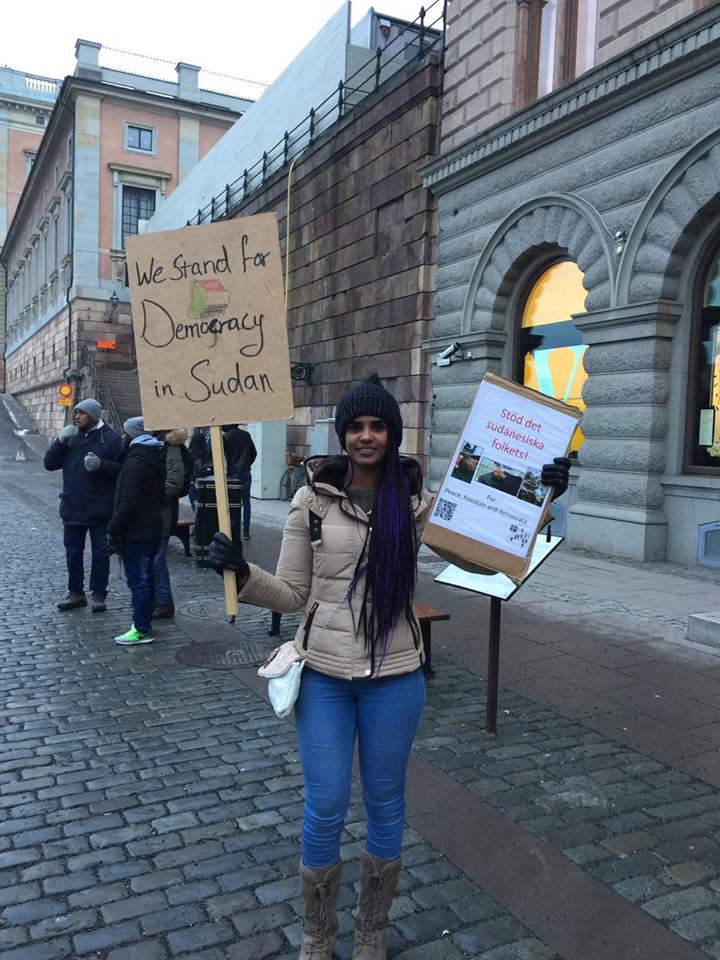 We Stand for
Democracy
in Sudan
Stöd det
sudanesiska
folkets!
For
Peace, freedom and democracy